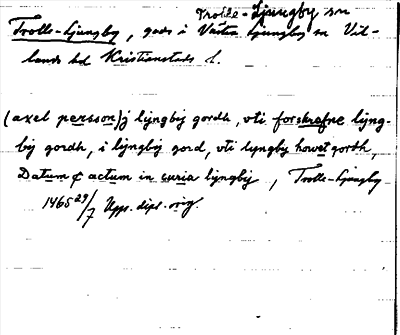 Trolle-Ljungby sn
Trolle-Ljungby, gods i Västra Ljungby sn Vil-
lands hd Kristianstads l.
(axel persson) j lijngbij gordh, vti forskrefne lijng-
bij gordh, i lijngbij gord, vti lyngby howet gordh,
Datum & actum in curia lijngbij, Trolle-Ljungby
1465 29/7 Upps. dipl. orig.